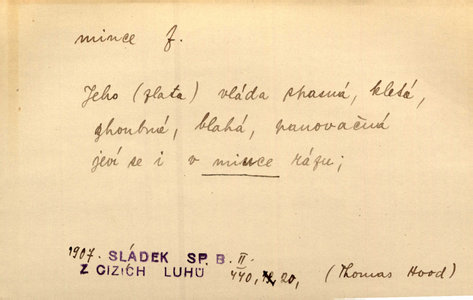 mince f.
Jeho (zlata) vláda spasná, kletá,
zhoubná, blahá, panovačná
jeví se i v mince rázu;
1907. SLÁDEK SP. B. II.
Z CIZÍCH LUHŮ 440, 20, (Thomas Hood)